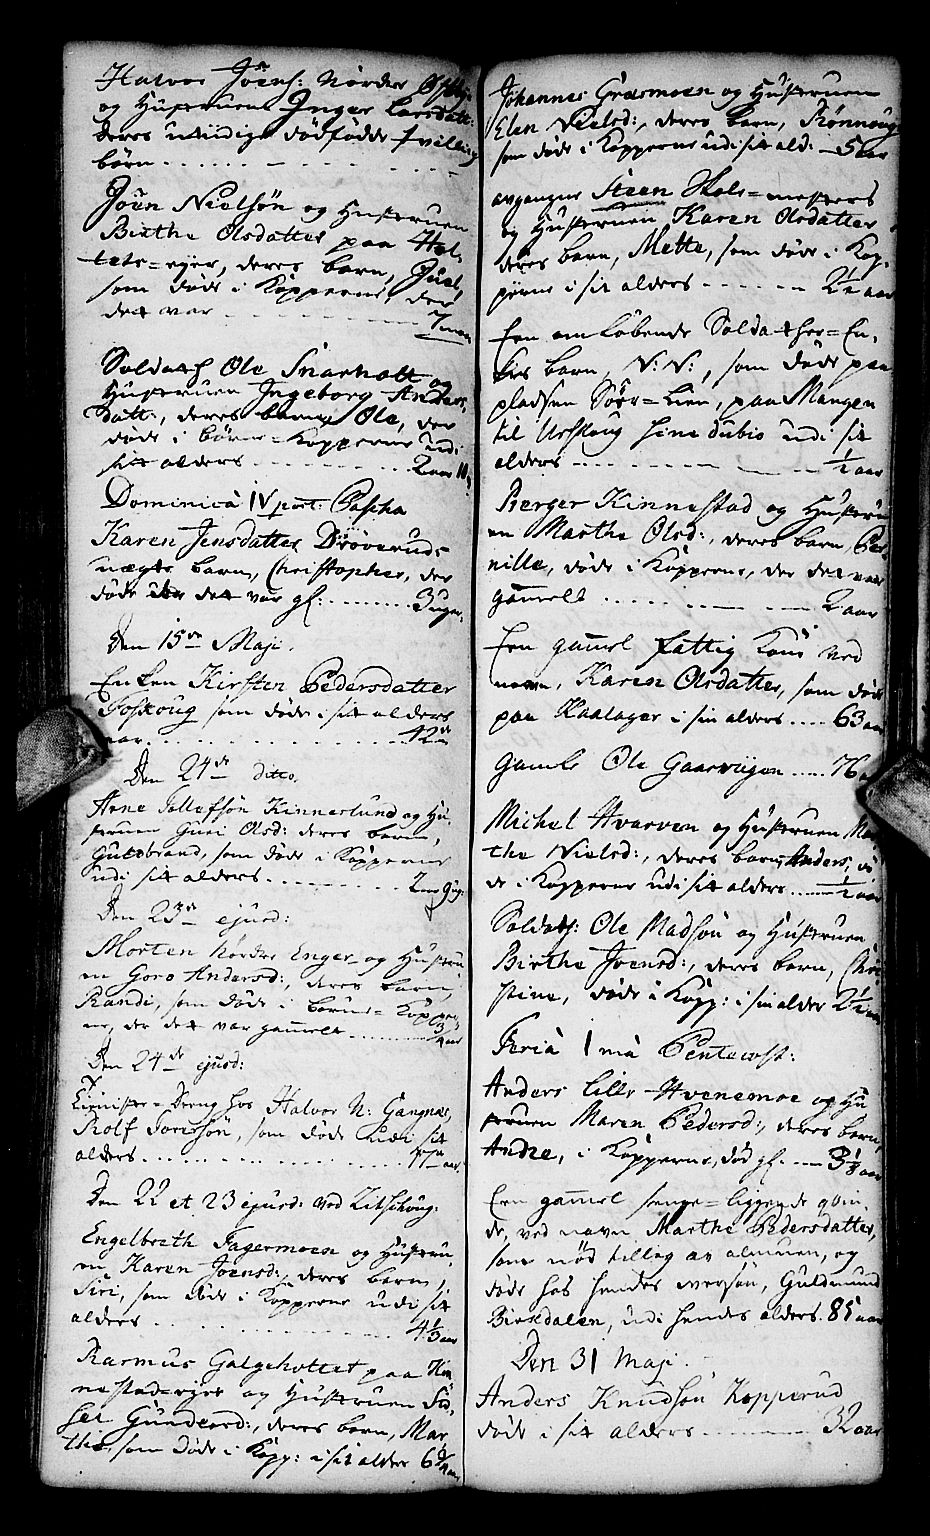 Halvor Joens: Nordre
og Hustruens Inger Larsdatt:
deres uciidige dødfødde tvilling
børn
Joen Nielsön og Hustruen
Birthe Olsdatter paa Hol-
tets=ejer, deres barn, Juul,
som døde i Kopperne, der
det var 7 maan
Soldath Ole Snarholt og
Hustruen Ingeborg Anders-
datt:, deres barn, Ole, der
døde i børne=Kopperne udi
sitt alders 2 aar 10
Dominica IV post: Pascha
Karen Jensdatter Drøveruds
uægte barn, Christopher, der
døde der det var gl: 3 uger
Den 15de Maji.
Enken Kirsten Pedersdatter
Foskoug som døde i sit alders
aar 42de
Den 24de ditto.
Arne Tollefsön Kinnerlund og Hu-
struen Guri Olsd: deres barn,
Gulbrand, som døde i Kopperne
udi sit alders 2 aar 9 ug:
Den 23de ejusd:
Morten Nordre Enger og Hustru
en Goro Andersd:, deres barn,
Randi, som døde i børne=Kopper
ne, der det var gammelt 3/4 aar
Den 24de ejusd:
Dreng hos Halvor N: Gangnæs,
Rolf Torersön, som døde udi sit
alders 17de aar.
Den 22 et 23 ejusd: ved Kitzhoug:
Engelbreth Fagermoen og Hustru-
en Karen Joensd:, deres barn,
Siri, som døde i Kopperne udi sit
alders 4 1/3 aar
Rasmus Galgeholtet paa Kin
nestad=ejer og Hustruen Sid-
sel Gundersd:, deres barn, Mar
the, som døde i Kopp: i sit alder 6 aar
Johannes Græsmoen og Hustruen
Elen Nielsd:, deres barn, Rønnoug
som døde i Kopperne udi sit ald: 5 aar
afgangne Steen Skole=mesters
og Hustruen Karen Olsdatter,
deres barn, Mette, som døde i Kop-
perne i sit alders 2 1/2 aar
Een omløbende Soldather=En-
kes barn, N: N:, som døde paa
pladsen Sörr=Lien, paa Mangen
til Urskoug sine dubio udi sit
alders 1/2 aar
Berger Kinnestad og Hustru-
en Marthe Olsd:, deres barn, Per-
nille, døde i Kopperne, der det var
gammelt 2 aar
Een gamel fattig Kone ved
navn, Karen Olsdatter, som døde
paa Kaalager i sin alders 63 aar
Gamle Ole Gaarviigen 76
Michel Hvarven og Hustruen Mar-
the Nielsd:, deres barn, Anders, dö-
de i Kopperne udi sit alders 1/2 aar
Soldath: Ole Madsön og Hustruen
Birthe Joensd:, deres barn, Chri
stine, døde i Kopp: i sin alder 2 1/2 aar
Feria 1ma Pentecost:
Anders lille Hvenemoe og Hu
struen Maren Pedersd:, deres barn,
Andre, i Kopperne, død gl: 3 1/2 aar
Een gamel senge=liggende qvin-
de, ved navn Marthe Pedersdatter,
som nød tillæg av almuen, og
døde hos hendes versön, Guldmund
Birkedalen, udi hendes alders 85 aar
Den 31 Maji.
Anders Knudsön Kopperud
døde i sit alders 32 aar